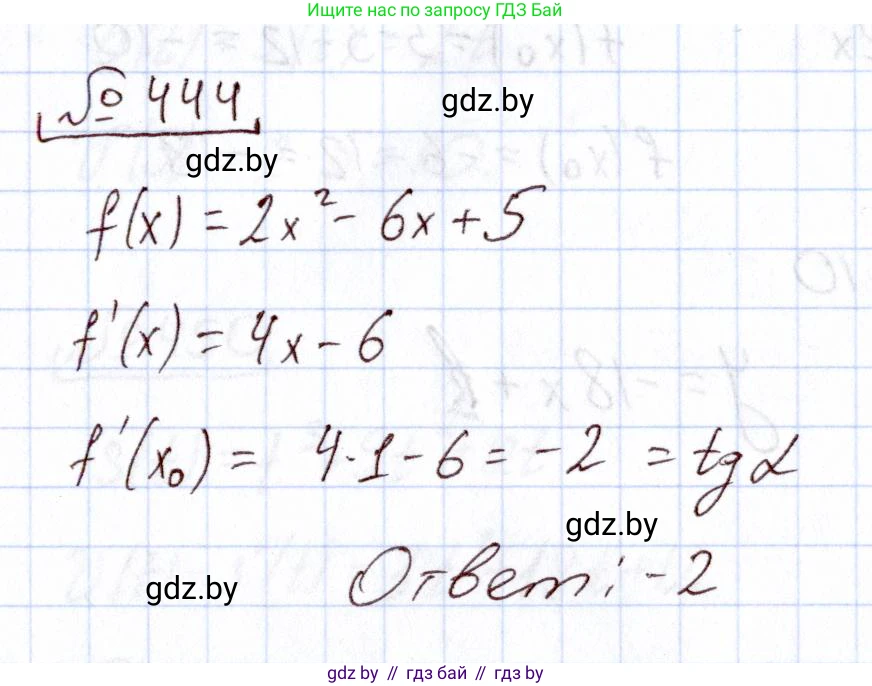 Ищите нас по запросу ГДЗ Бай
№ 444
gdz.by
gdz.by
f(x) = 2x² - 6x + 5
f'(x) = 4x - 6
f'(x₀) = 4·1 - 6 = -2 = tg α
gdz.by
gdz.by
Ответ: -2
gdz.by // гдз бай // gdz by